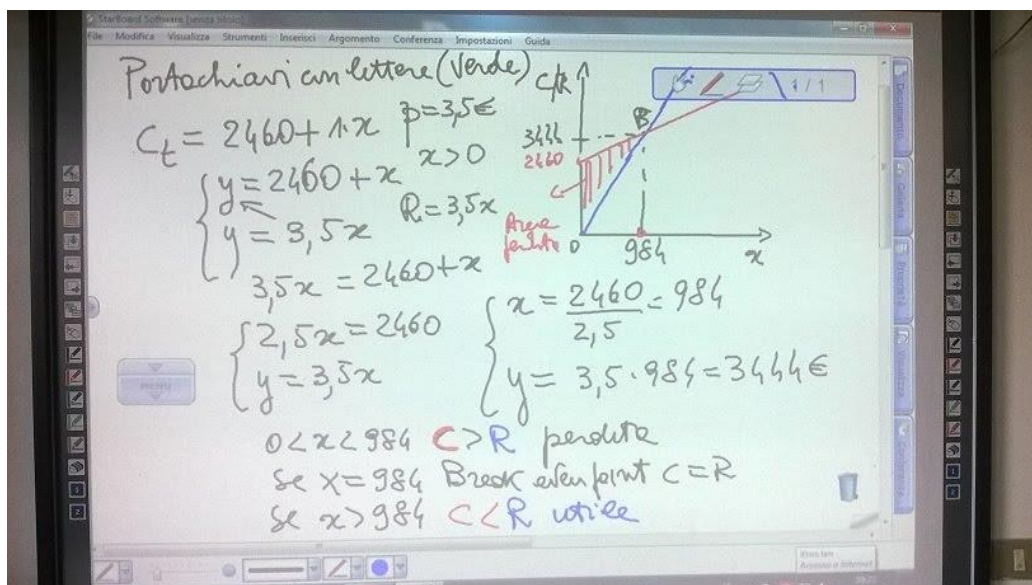 StarBoard Software [senza titolo]
File Modifica Visualizza Strumenti Inserisci Argomento Conferenza Impostazioni Guida
Portachiavi con lettere (Verde)
Ct = 2460 + 1·x p = 3,5€
x > 0
{ y = 2460 + x
{ y = 3,5x R = 3,5x
3,5x = 2460 + x
{ 2,5x = 2460
{ y = 3,5x
{ x = 2460/2,5 = 984
{ y = 3,5·984 = 3444€
0 < x < 984 C > R perdita
se x = 984 Break even point C = R
se x > 984 C < R utile
C/R
B
3444
2460
Area perdita
0
984
x
1 / 1
Documento
Galleria
Proprietà
Conferenza
1
2
1
2